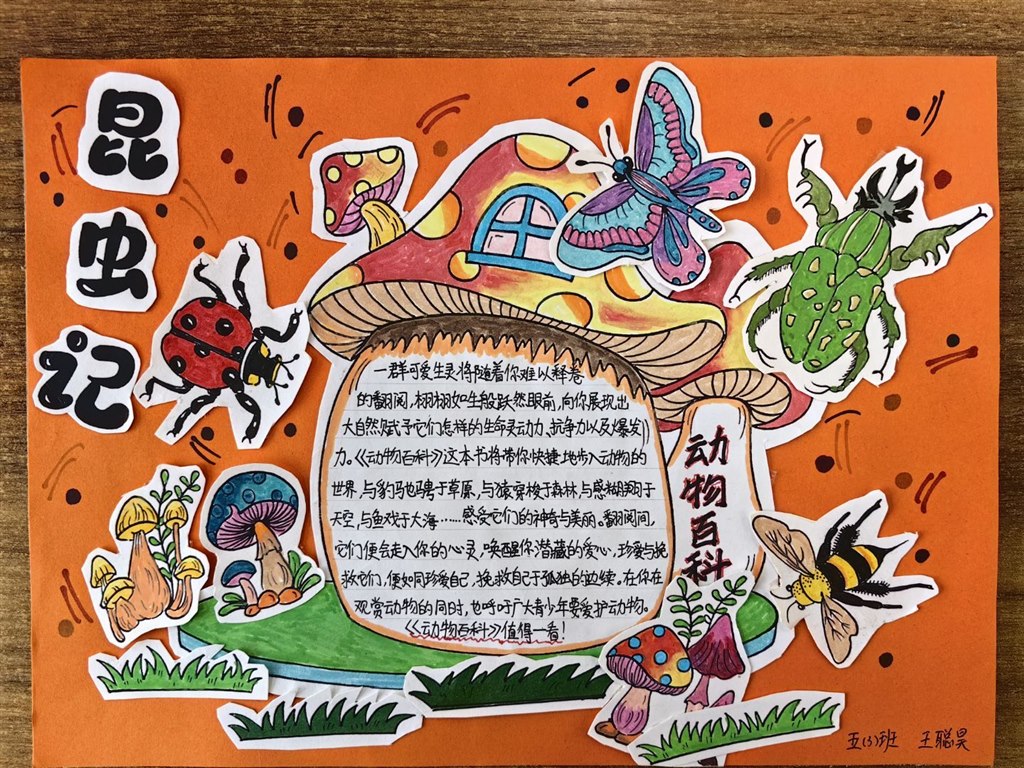 昆虫记
一群可爱生灵将随着你难以释卷
的翻阅,栩栩如生般跃然眼前,向你展现出
大自然赋予它们怎样的生命灵动力、抗争力以及爆发
力。《动物百科》这本书将带你快捷地步入动物的
世界,与豹马也骋于草原,与猿穿梭于森林,与鹰翱翔于
天空,与鱼戏于大海……感受它们的神奇与美丽。翻阅间,
它们便会走入你的心灵,唤醒你潜藏的爱心,珍爱与挽
救它们,便如同珍爱自己,挽救自己于孤独的边缘。在你在
观赏动物的同时,也呼吁广大青少年要爱护动物。
《动物百科》值得一看!
动物百科
五(3)班 王聪昊